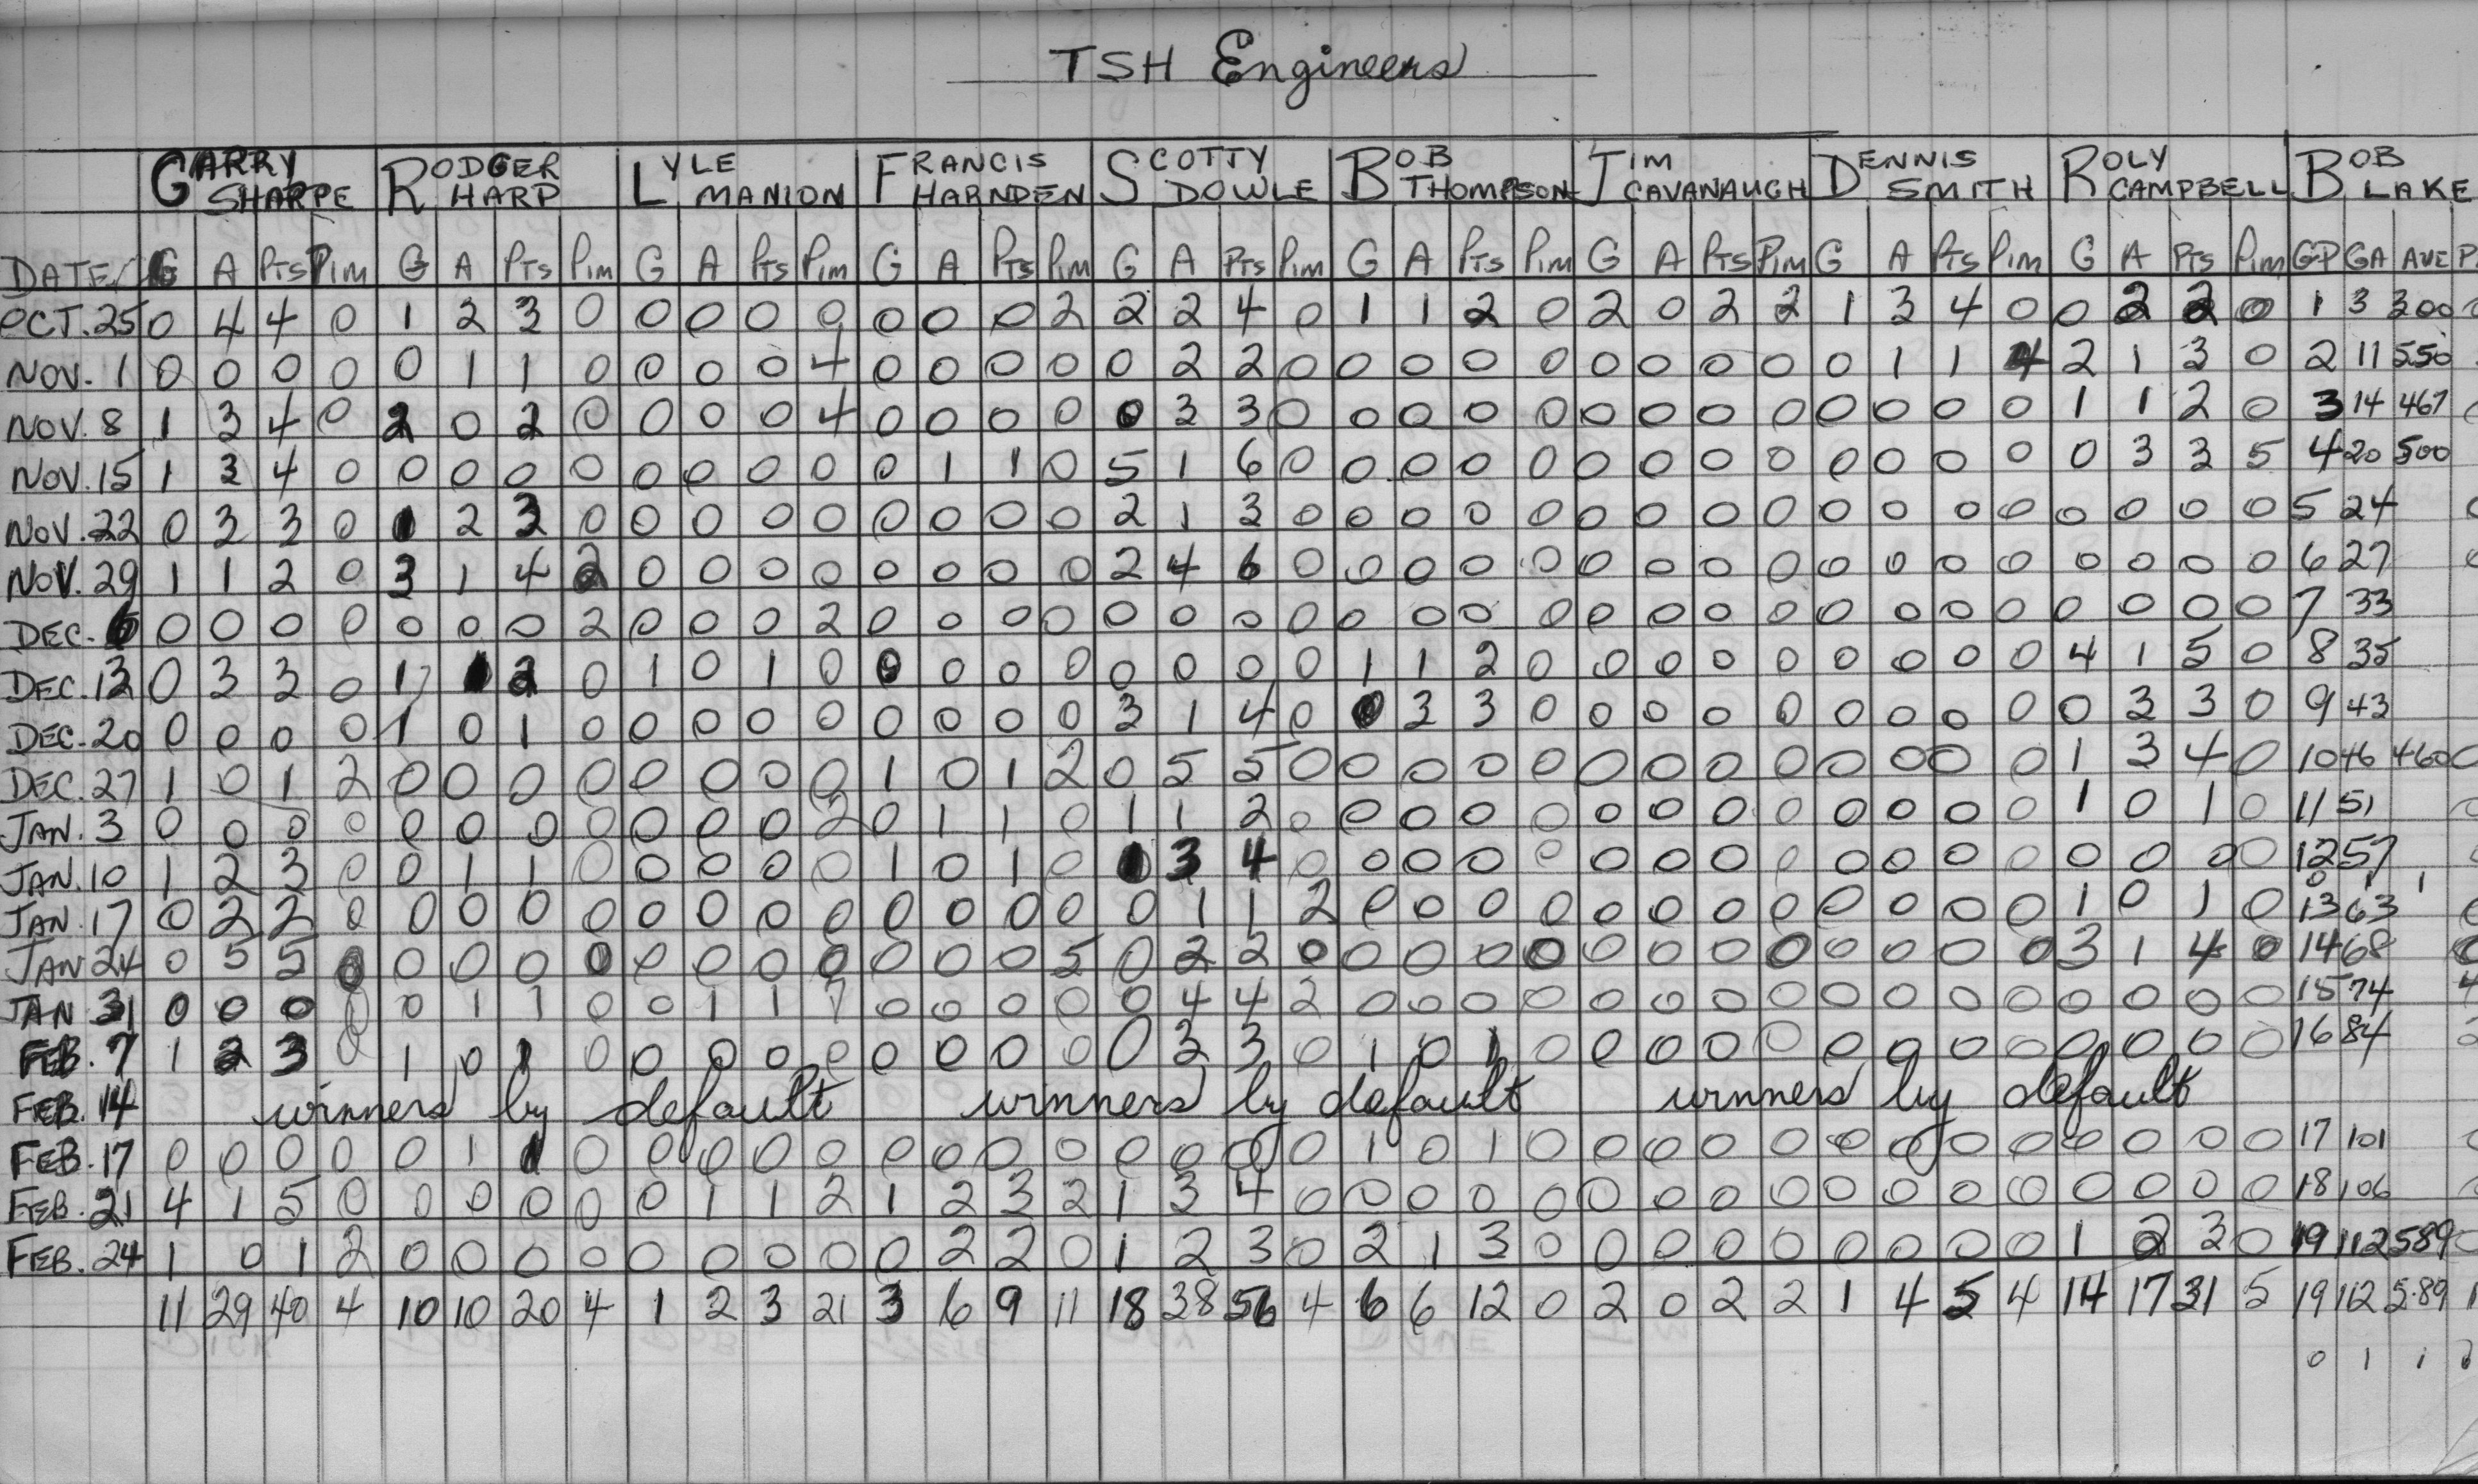 TSH Engineers
GARRY SHARPE RODGER HARP LYLE MANION FRANCIS HARNDEN SCOTTY DOWLE BOB THOMPSON JIM CAVANAUGH DENNIS SMITH ROLY CAMPBELL BOB LAKE
DATE G A PTS PIM G A PTS PIM G A PTS PIM G A PTS PIM G A PTS PIM G A PTS PIM G A PTS PIM G A PTS PIM G A PTS PIM GP GA AVE
OCT. 25 0 4 4 0 1 2 3 0 0 0 0 0 0 0 0 2 2 2 4 0 1 1 2 0 2 0 2 2 1 3 4 0 0 2 2 0 1 3 300
NOV. 1 0 0 0 0 0 1 1 0 0 0 0 4 0 0 0 0 0 2 2 0 0 0 0 0 0 0 0 0 0 1 1 4 2 1 3 0 2 11 550
NOV. 8 1 3 4 0 2 0 2 0 0 0 0 4 0 0 0 0 0 3 3 0 0 0 0 0 0 0 0 0 0 0 0 0 1 1 2 0 3 14 467
NOV. 15 1 3 4 0 0 0 0 0 0 0 0 0 0 1 1 0 5 1 6 0 0 0 0 0 0 0 0 0 0 0 0 0 0 3 3 5 4 20 500
NOV. 22 0 3 3 0 1 2 3 0 0 0 0 0 0 0 0 0 2 1 3 0 0 0 0 0 0 0 0 0 0 0 0 0 0 0 0 0 5 24
NOV. 29 1 1 2 0 3 1 4 2 0 0 0 0 0 0 0 0 2 4 6 0 0 0 0 0 0 0 0 0 0 0 0 0 0 0 0 0 6 27
DEC. 6 0 0 0 0 0 0 0 2 0 0 0 2 0 0 0 0 0 0 0 0 0 0 0 0 0 0 0 0 0 0 0 0 0 0 0 0 7 33
DEC. 13 0 3 3 0 1 1 2 0 1 0 1 0 0 0 0 0 0 0 0 0 1 1 2 0 0 0 0 0 0 0 0 0 4 1 5 0 8 35
DEC. 20 0 0 0 0 1 0 1 0 0 0 0 0 0 0 0 0 3 1 4 0 0 3 3 0 0 0 0 0 0 0 0 0 0 3 3 0 9 43
DEC. 27 1 0 1 2 0 0 0 0 0 0 0 0 1 0 1 2 0 5 5 0 0 0 0 0 0 0 0 0 0 0 0 0 1 3 4 0 10 46 460
JAN. 3 0 0 0 0 0 0 0 0 0 0 0 2 0 1 1 0 1 1 2 0 0 0 0 0 0 0 0 0 0 0 0 0 1 0 1 0 11 51
JAN. 10 1 2 3 0 0 1 1 0 0 0 0 0 1 0 1 0 1 3 4 0 0 0 0 0 0 0 0 0 0 0 0 0 0 0 0 0 12 57
0 1 1
JAN. 17 0 2 2 0 0 0 0 0 0 0 0 0 0 0 0 0 0 1 1 2 0 0 0 0 0 0 0 0 0 0 0 0 1 0 1 0 13 63
JAN 24 0 5 5 0 0 0 0 0 0 0 0 0 0 0 0 5 0 2 2 0 0 0 0 0 0 0 0 0 0 0 0 0 3 1 4 0 14 68
JAN 31 0 0 0 0 0 1 1 0 0 1 1 7 0 0 0 0 0 4 4 2 0 0 0 0 0 0 0 0 0 0 0 0 0 0 0 0 15 74
FEB. 7 1 2 3 0 1 0 1 0 0 0 0 0 0 0 0 0 0 3 3 0 1 0 1 0 0 0 0 0 0 0 0 0 0 0 0 0 16 84
FEB. 14 winners by default winners by default winners by default
FEB. 17 0 0 0 0 0 1 1 0 0 0 0 0 0 0 0 0 0 0 0 0 1 0 1 0 0 0 0 0 0 0 0 0 0 0 0 0 17 101
FEB. 21 4 1 5 0 0 0 0 0 0 1 1 2 1 2 3 2 1 3 4 0 0 0 0 0 0 0 0 0 0 0 0 0 0 0 0 0 18 106
FEB. 24 1 0 1 2 0 0 0 0 0 0 0 0 0 2 2 0 1 2 3 0 2 1 3 0 0 0 0 0 0 0 0 0 1 2 3 0 19 112 589
11 29 40 4 10 10 20 4 1 2 3 21 3 6 9 11 18 38 56 4 6 6 12 0 2 0 2 2 1 4 5 4 14 17 31 5 19 112 5.89
0 1 1